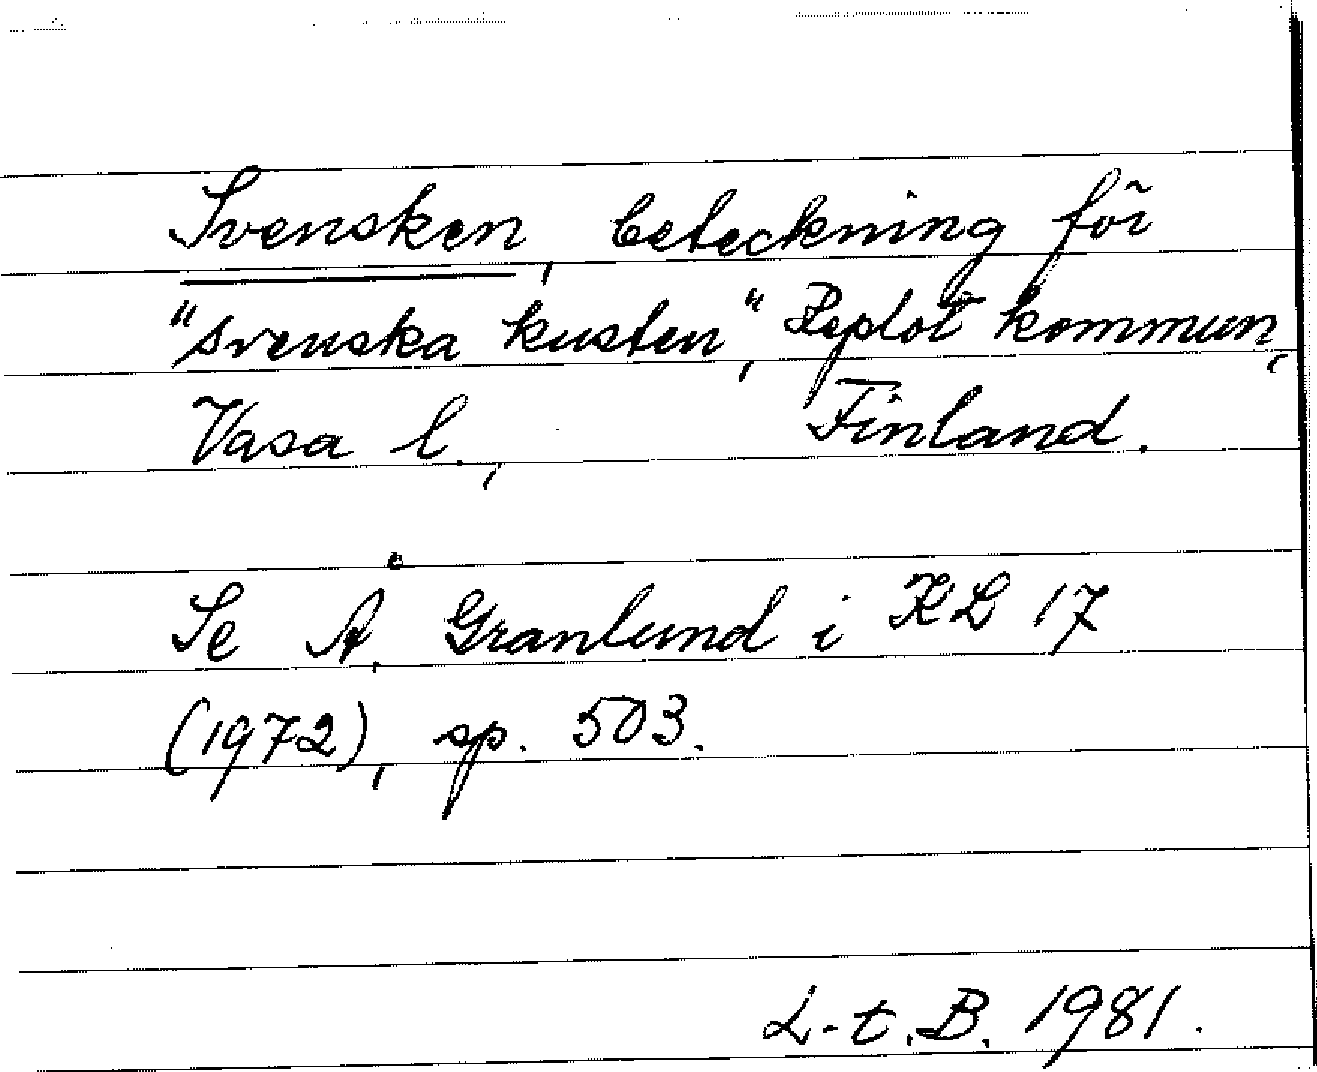 Svensken, beteckning för
"svenska kusten", Replot kommun,
Vasa l., Finland.
Se Å. Granlund i KL 17
(1972), sp. 503.
L-t. B. 1981.